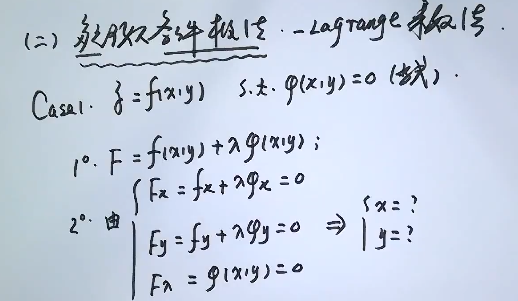 (二) 条件极值 - Lagrange 乘数法.
Case1. z = f(x,y) s.t. φ(x,y) = 0 (
1°. F = f(x,y) + λφ(x,y);
Fx = fx + λφx = 0
2°. 由 Fy = fy + λφy = 0 ⇒ { x = ? y = ?
Fλ = φ(x,y) = 0